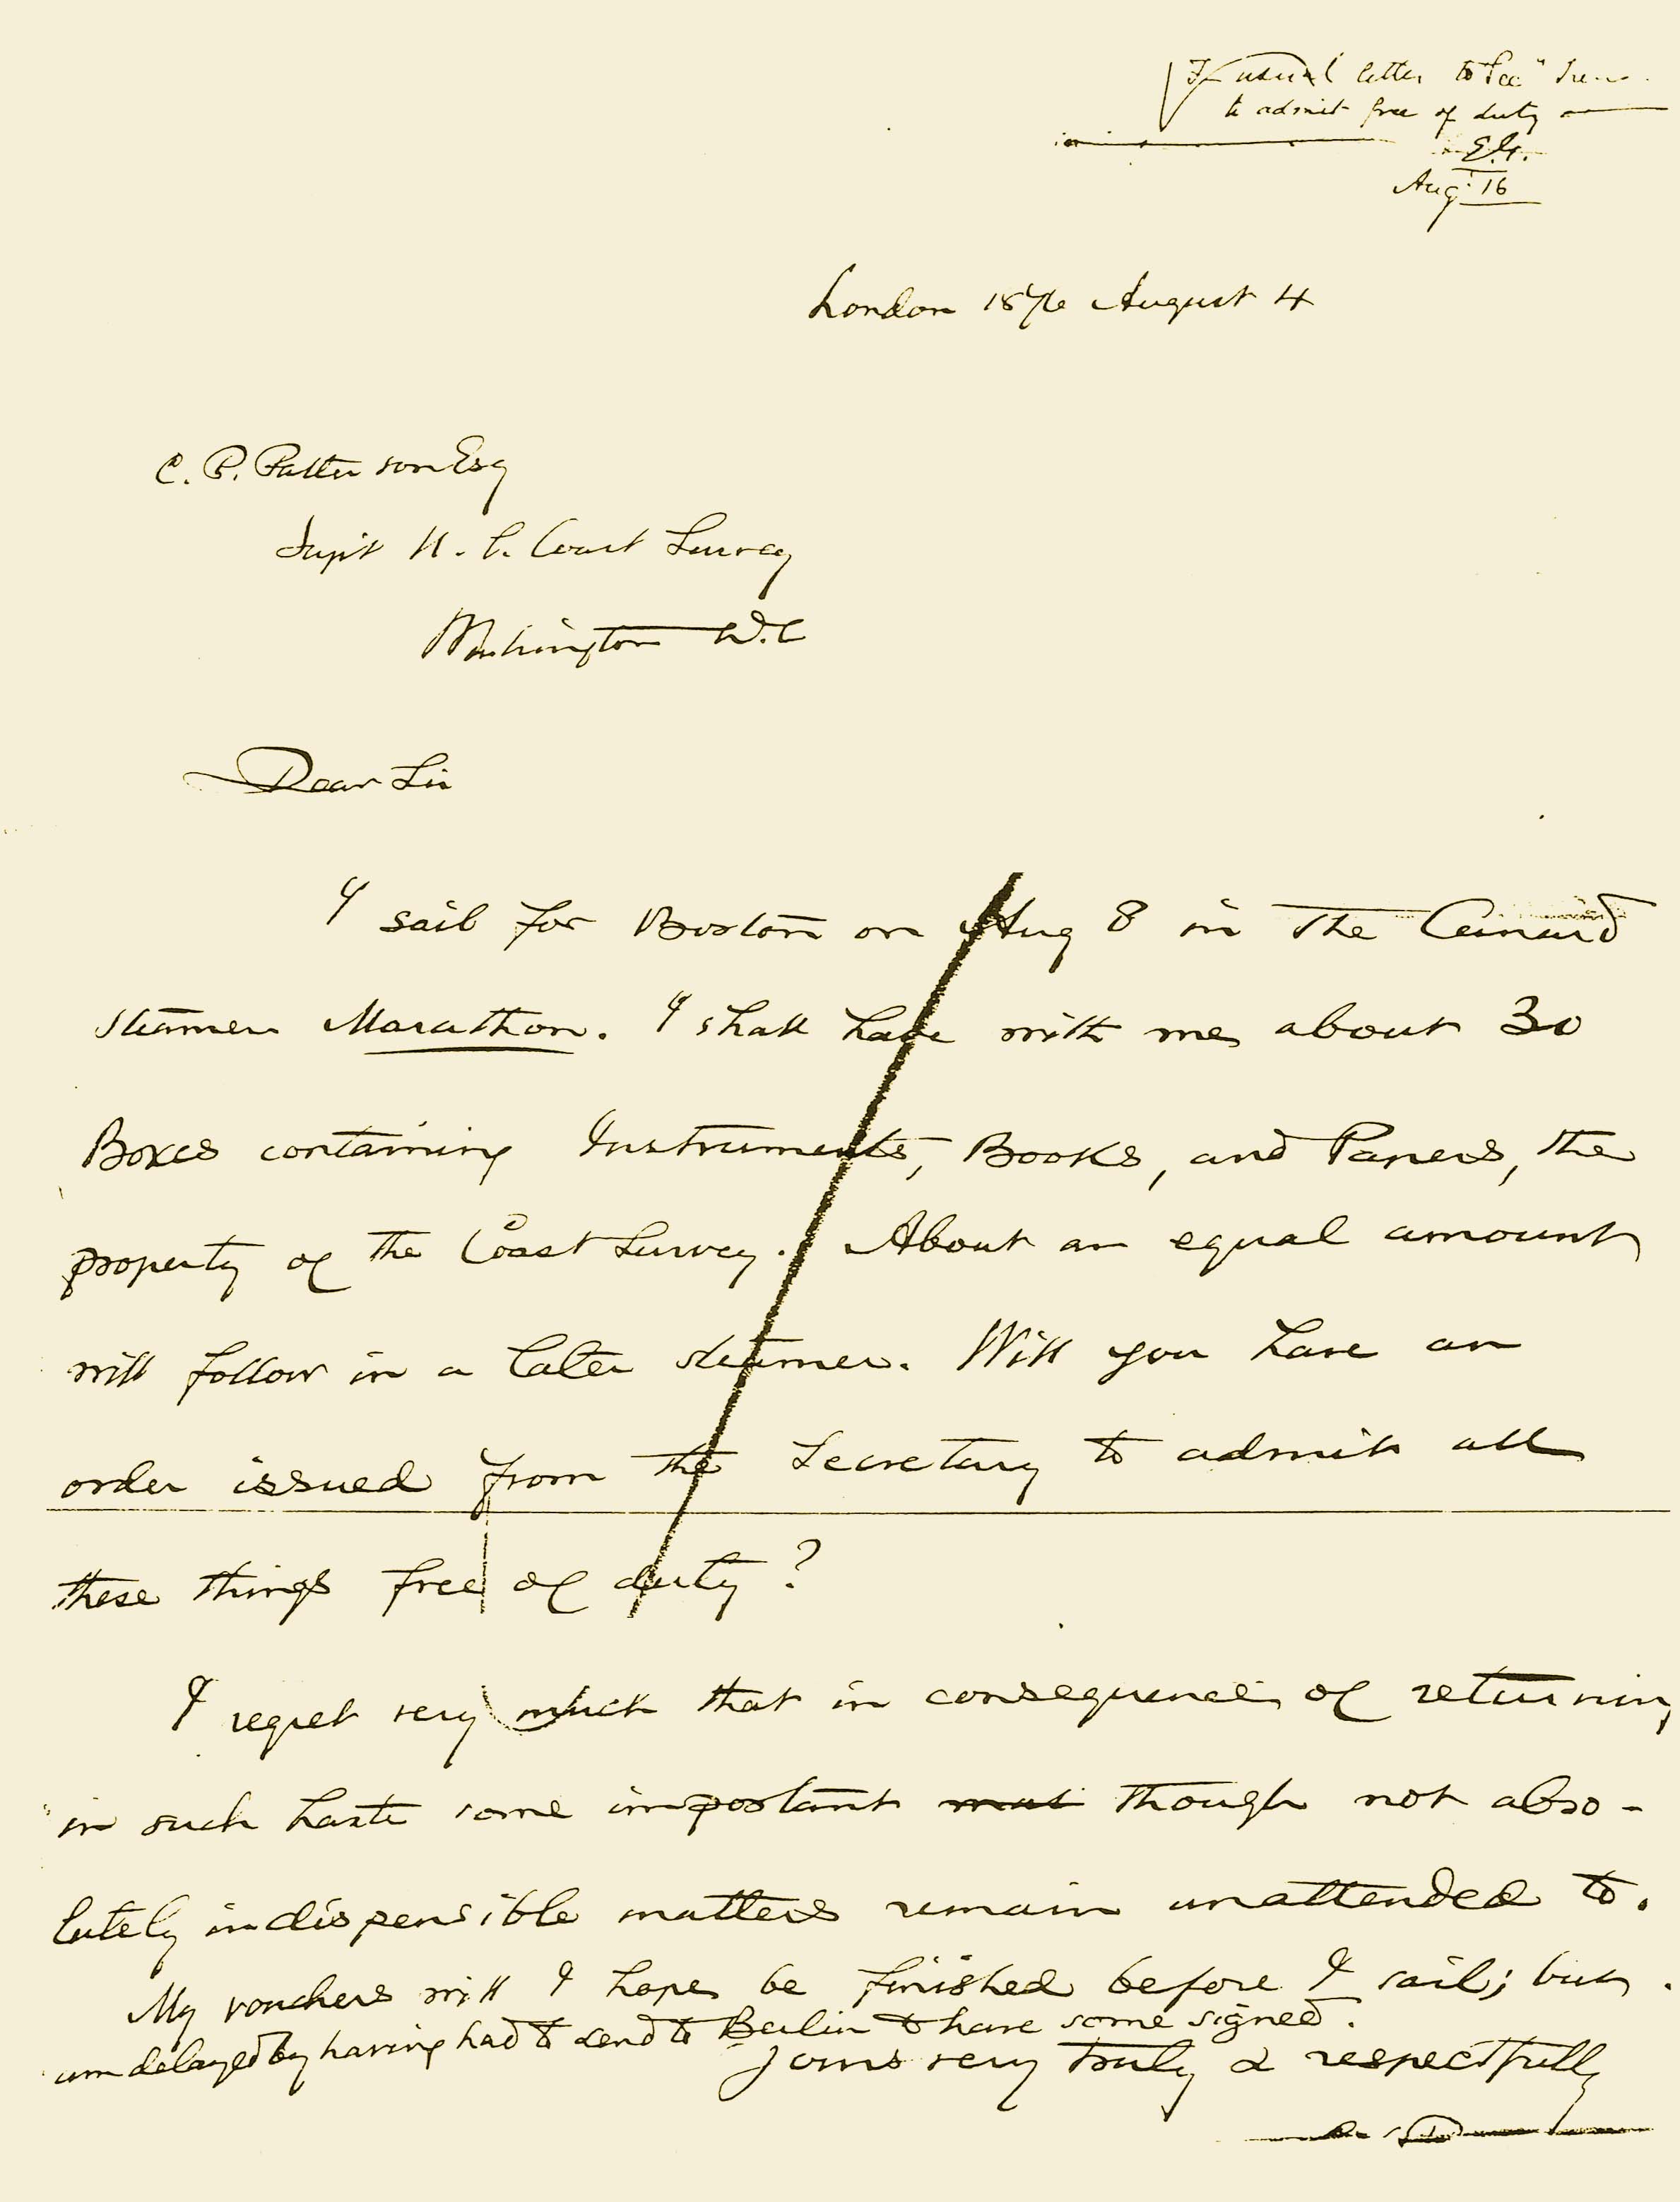 usual letter to Sec Treas.
to admit free of duty
Aug. 16
London 1876 August 4
C. P. Patterson Esq
Supt U. S. Coast Survey
Washington D.C
Dear Sir
I sail for Boston on Aug 8 in the Cunard
steamer Marathon. I shall have with me about 30
Boxes containing Instruments, Books, and Papers, the
property of the Coast Survey. About an equal amount
will follow in a later steamer. Will you have an
order issued from the Secretary to admit all
these things free of duty?
I regret very much that in consequence of returning
in such haste some important though not abso-
lutely indispensible matters remain unattended to.
My vouchers will I hope be finished before I sail; but
am delayed by having had to send to Berlin to have some signed.
Yours very truly & respectfully